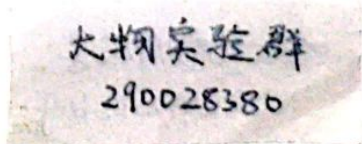 大物实验群
290028380